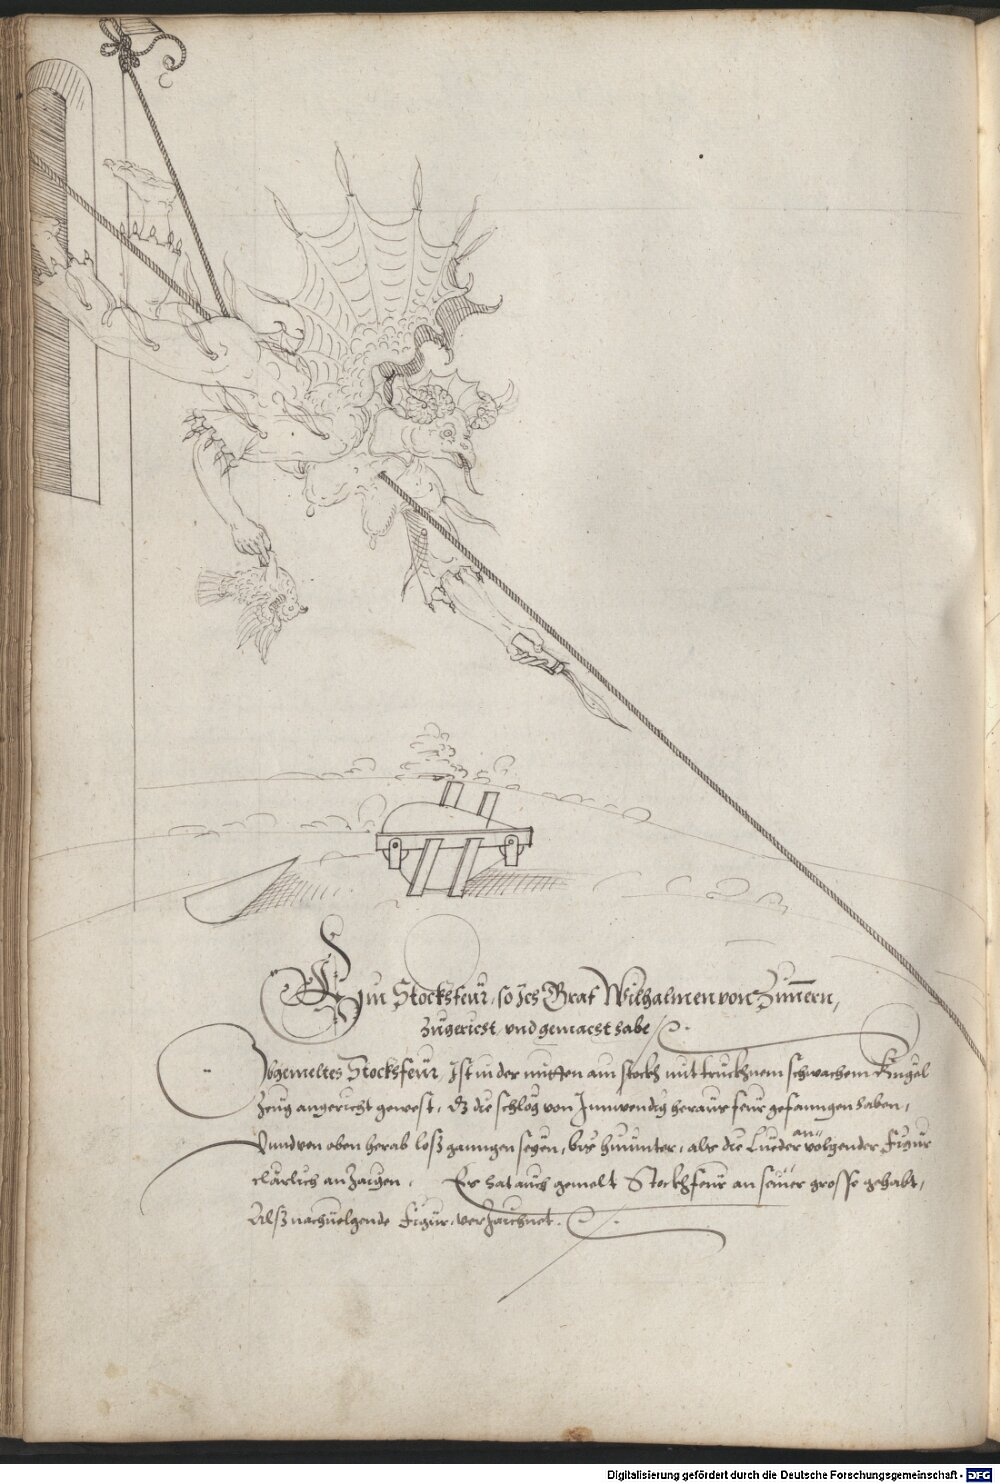 Ein Stockhfeur, so Ich Graf Wilhalmen von Zimern,
Zugericht, und gemacht habe
Abgemeltes Stockhfeur, Ist in der mitten am stockh mit truckhnem schwachem Kugel
Zeug angericht gewest, dz die schleg von Innwendig heraus feur gefanngen haben,
Vund von oben herab loss ganngen seyen, bis hinunter, als die Lueder an
volgender Figur
clärlich anzaigen. Er hat auch gemelt Stockhfeur an seiner grosse gehabt,
Alss nachuolgende Figur, verzaichnet.
Digitalisierung gefördert durch die Deutsche Forschungsgemeinschaft - DFG